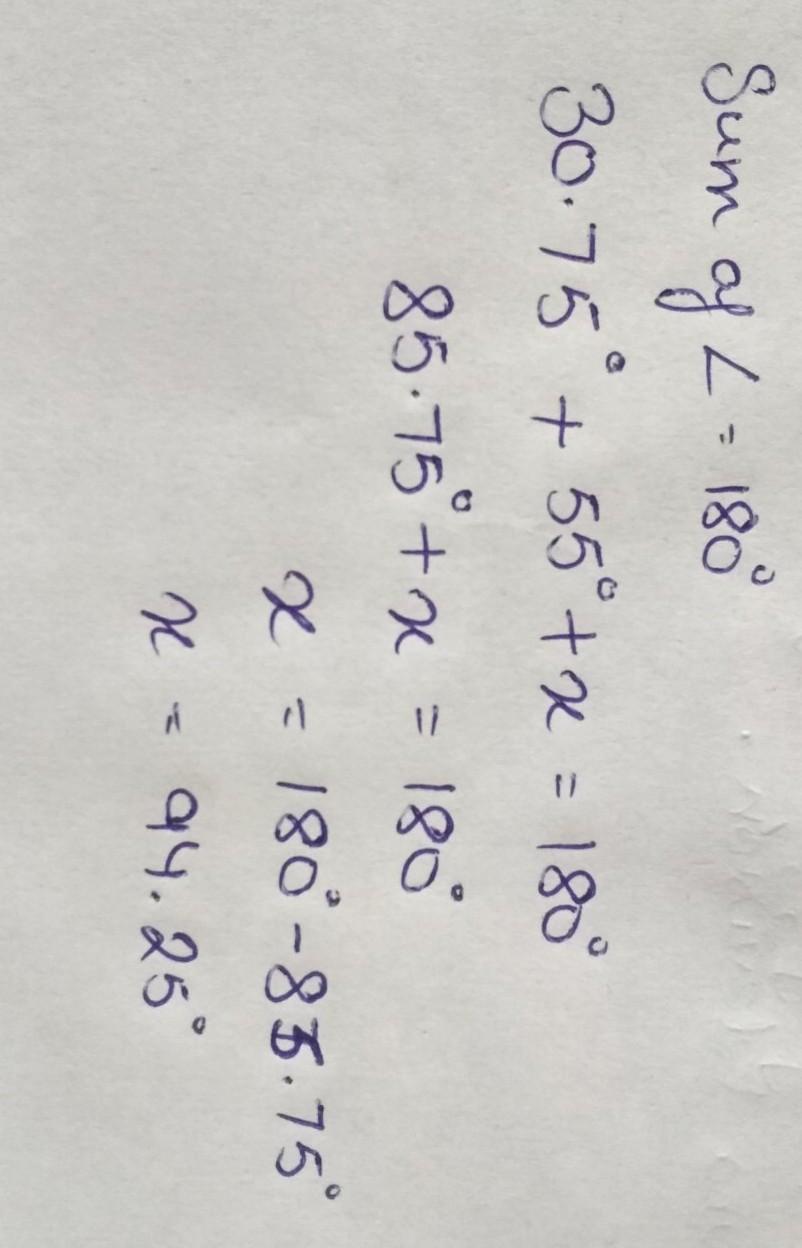 Sum of ∠ = 180°
30.75° + 55° + x = 180°
85.75° + x = 180°
x = 180° - 85.75°
x = 94.25°